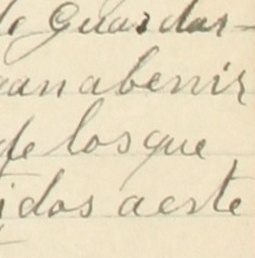 de Guardar-
an abenir
de los que
idos aeste